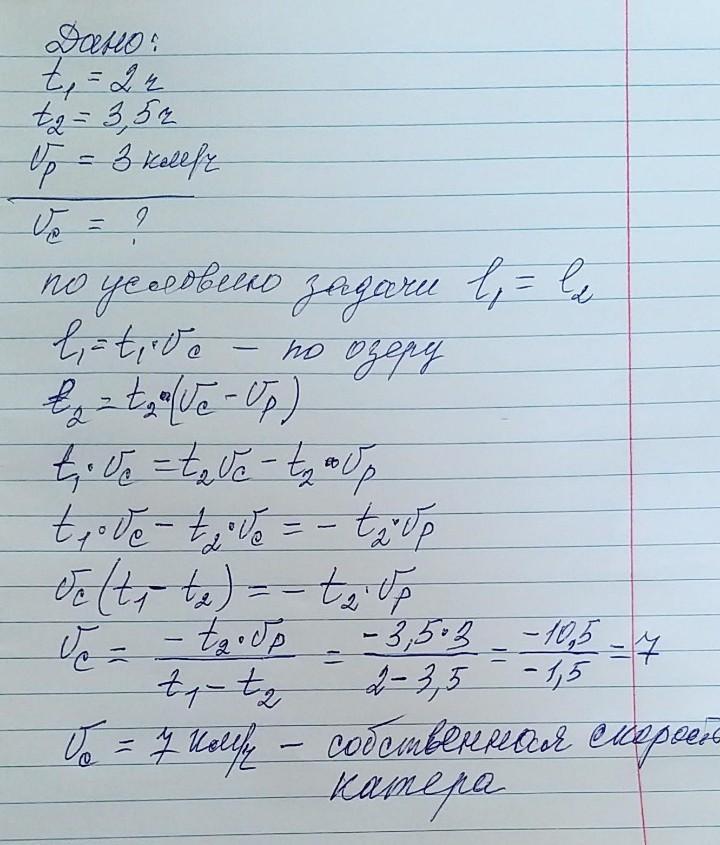 Дано:
t₁ = 2 ч
t₂ = 3,5 ч
v_р = 3 км/ч
v_c = ?
по условию задачи l₁ = l₂
l₁ = t₁·v_c – по озеру
l₂ = t₂·(v_c - v_р)
t₁·v_c = t₂v_c - t₂·v_р
t₁·v_c - t₂·v_c = - t₂·v_р
v_c(t₁ - t₂) = - t₂·v_р
v_c = (- t₂·v_р)/(t₁ - t₂) = (-3,5·3)/(2-3,5) = (-10,5)/(-1,5) = 7
v_c = 7 км/ч – собственная скорость
катера